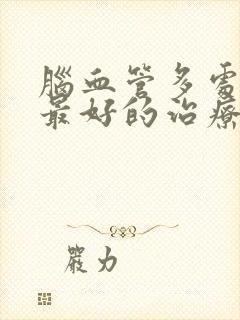 腦血管多處
最好的治療
嚴力